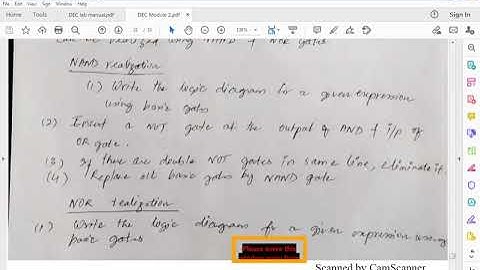 Home Tools DEC lab manual.pdf DEC Module 2.pdf Sign In
can be realized using NAND & NOR gates
NAND realization
(1) Write the logic diagram for a given expression
using basic gates
(2) Insert a NOT gate at the output of AND & i/p of
OR gate.
(3) If there are double NOT gates in same line, eliminate it.
(4) Replace all basic gates by NAND gate
NOR realization
(1) Write the logic diagram for a given expression using
basic gates
Please cover this
Scanned by CamScanner